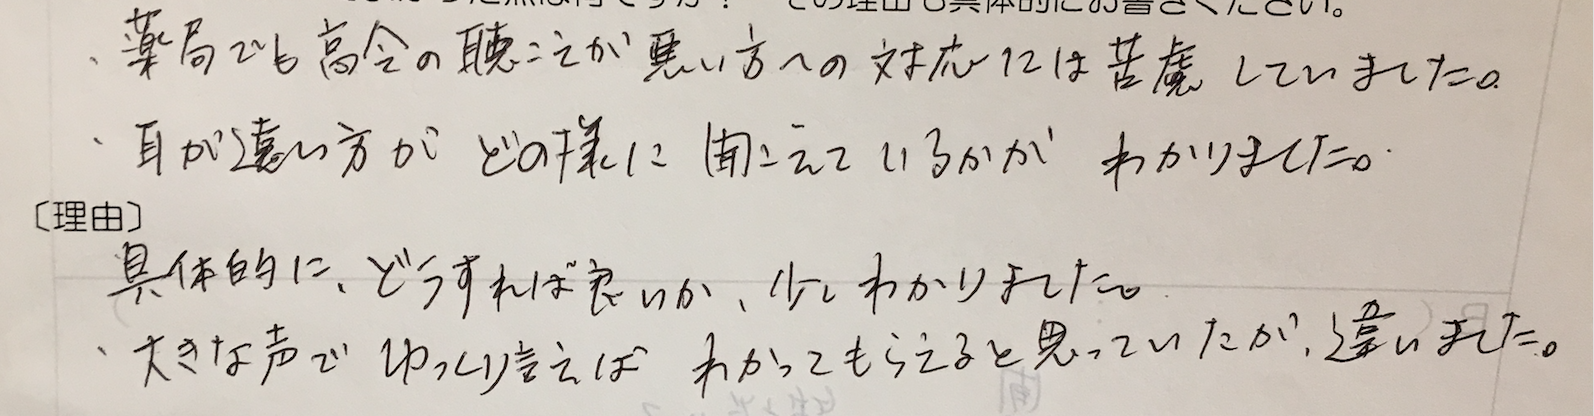 た点は何ですか？ その理由も具体的にお書きください。
・薬局でも高令の聴こえが悪い方への対応には苦慮していました。
・耳が遠い方がどの様に聞こえているかがわかりました。
〔理由〕
具体的に、どうすれば良いか、少しわかりました。
・大きな声でゆっくり言えばわかってもらえると思っていたが、違いました。